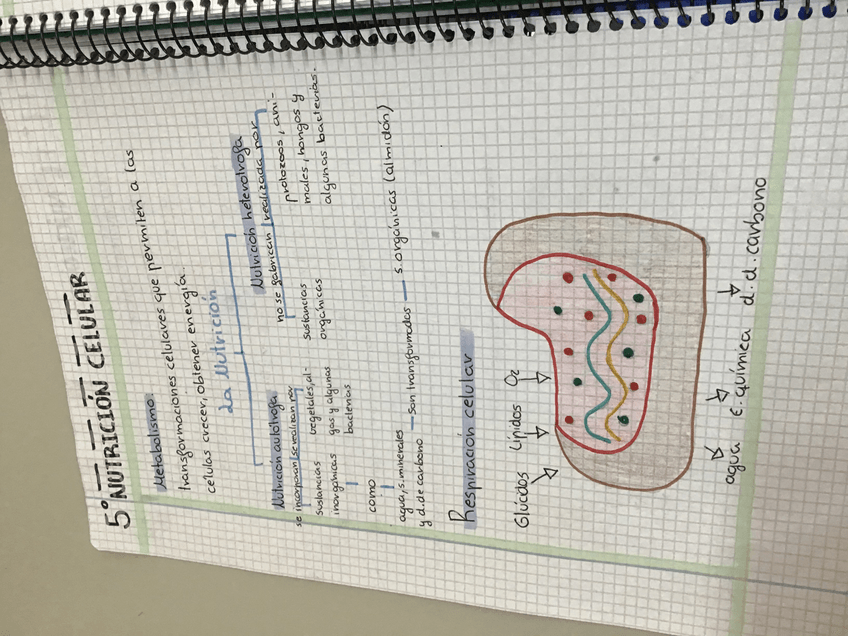 5º NUTRICIÓN CELULAR
Metabolismo
transformaciones celulares que permiten a las
células crecer, obtener energía
La Nutrición
Nutrición autótrofa
se incorporan se realizan por
sustancias vegetales, al-
inorgánicas gas y algunas
bacterias
como
agua, s. minerales
y d. de carbono — son transformados — s. orgánicas (almidón)
Nutrición heterótrofa
no se fabrican realizada por
sustancias
orgánicas
protozoos, ani-
males, hongos y
algunas bacterias.
Respiración celular
Glúcidos Lípidos O₂
agua E. química d. d. carbono